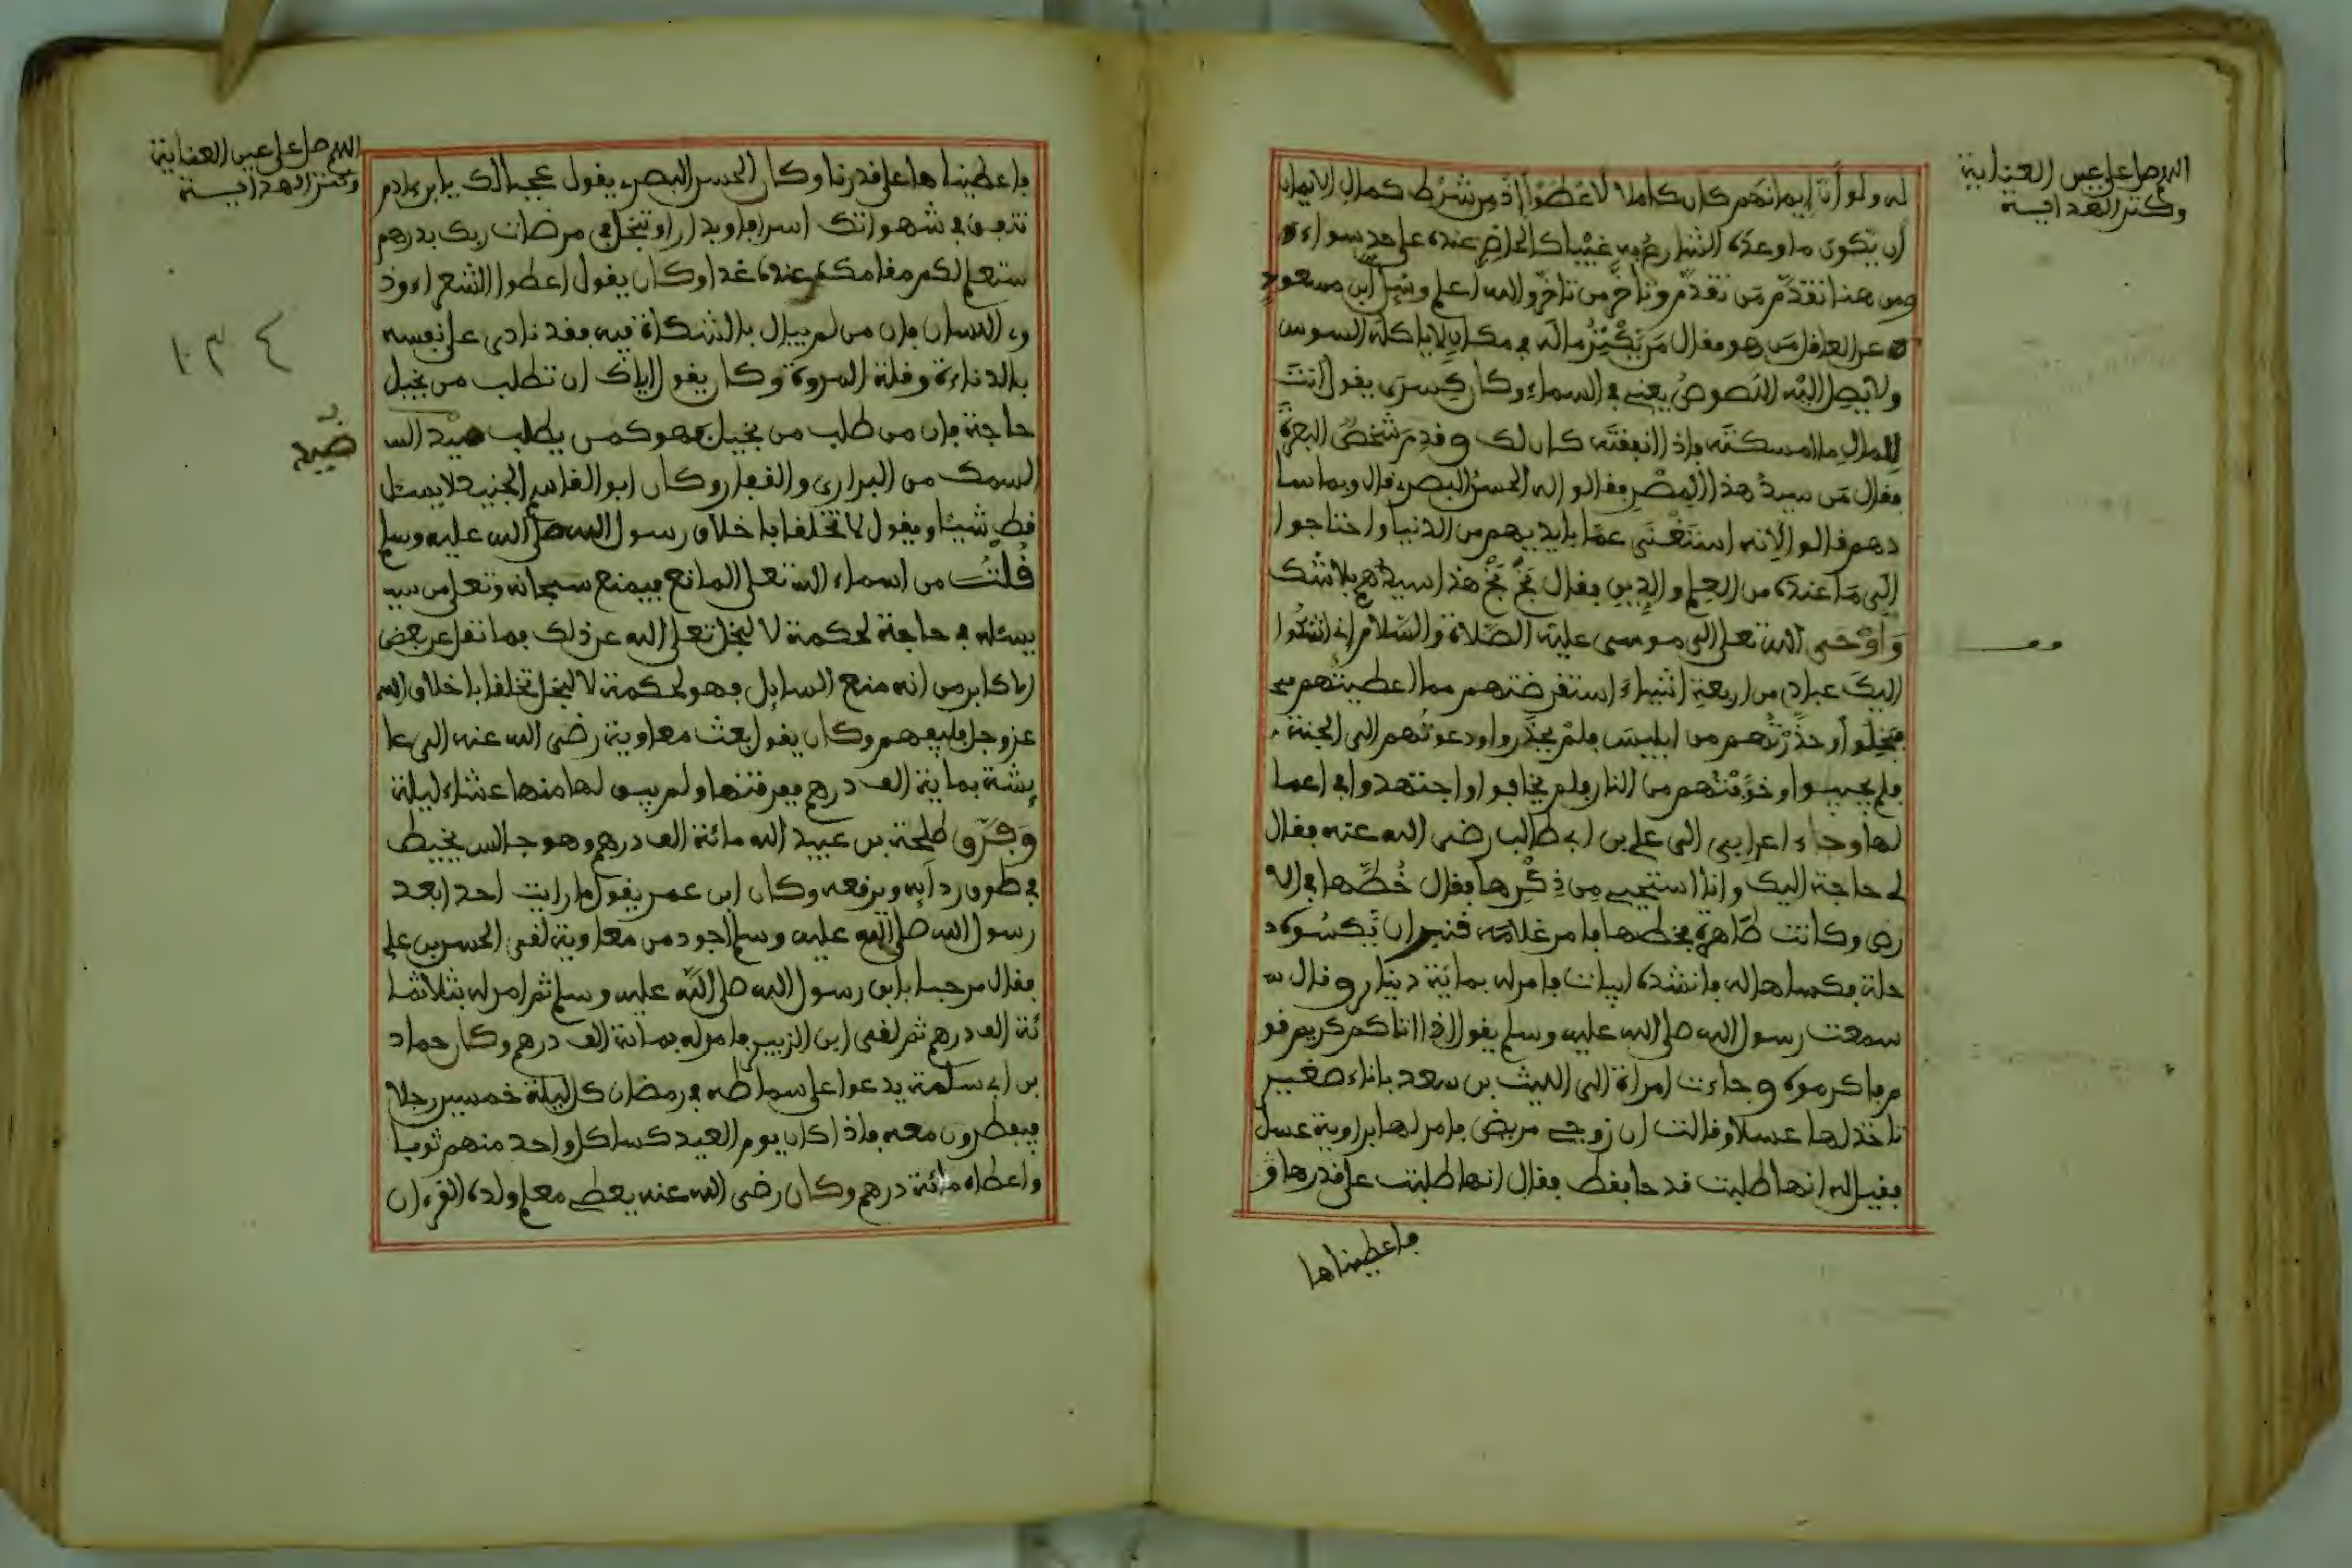 اللهم صل على عين العناية
وكنز الهداية
له ولو أنّ إيمانهم كان كاملا لأعطوا إذ من شرط كمال الإيمان
أن يكون ما وعده الشارع به غيبا كالحاضر عنده على حد سواء
ومن هنا تقدّم من تقدّم وتأخّر من تأخّر والله اعلم وسئل ابن مسعود
عن العاقل من هو فقال من يكنز ماله في مكان لا ياكله السوس
ولا يصل اليه اللصوص يعني في السماء وكان كسرى يقول انت
للمال ما امسكته فإذا انفقته كان لك وقدم شخص البصرة
فقال من سيد هذا المصر فقالوا له الحسن البصري قال وبما سا
دهم قالوا لأنه استغنى عمّا بايديهم من الدنيا واحتاجوا
الى ما عنده من العلم والدين فقال بخ بخ هذا سيدهم بلا شك
وأوحى الله تعلى الى موسى عليه الصلاة والسلام إنه اشكوا
اليك عبادي من اربعة اشياء استقرضتهم مما اعطيتهم
فبخلوا وحذّرتهم من ابليس فلم يحذروا ودعوتهم الى الجنة
فلم يجيبوا وخوّفتهم من النار فلم يخافوا واجتهدوا في اعما
لها وجاء اعرابي الى علي بن ابي طالب رضى الله عنه فقال
لي حاجة اليك وانا استحيي من ذكرها فقال خُطّها في الا
رض وكانت ظاهرة فخطها فامر غلامه قنبر ان يكسوه
حلة فكساها له فانشده ابيات فامر له بماية دينار وقال
سمعت رسول الله صلى الله عليه وسلم يقول اذا اتاكم كريم قو
م فاكرموه وجاءت امراة الى الليث بن سعد باناء صغير
تاخذ لها عسلا وقالت ان زوجي مريض فامر لها براوية عسل
فقيل له انها طلبت قدحا فقط فقال انها طلبت على قدرها و
فاعطيناها
اللهم صل على عين العناية
وكنز الهداية
فاعطيناها على قدرنا وكان الحسن البصري يقول عجبا لك يابن ءادم
تنفق في شهواتك اسرافا وبدارا وتبخل في مرضات ربك بدرهم
ستعلم لكع مقامك عنده غدا وكان يقول اعطوا الشعراء وذ
وي اللسان فإن من لم يبال بالشكاة فيه فقد نادى على نفسه
بالدناءة وقلة المروة وكان يقول اياك ان تطلب من بخيل
حاجة فإن من طلب من بخيل فهو كمن يطلب صيد
السمك من البراري والقفار وكان ابو القاسم الجنيد لا يسئل
قط شيئا ويقول لا تخلقا باخلاق رسول الله صلى الله عليه وسلم
قلت من اسماء الله تعلى المانع فيمنع سبحانه وتعلى من
يسئله في حاجة لحكمة لا لبخل تعلى الله عن ذلك فما نقل عن بعض
الاكابر من انه منع السايل فهو لحكمة لا لبخل تخلقا باخلاق الله
عز وجل فليفهم وكان يقول بعث معاوية رضى الله عنه الى عا
يشة بماية الف درهم ففرقتها ولم يبق لها منها عشاء ليلة
وفرّق طلحة بن عبيد الله مائة الف درهم وهو جالس يخيط
في طوق ردايه ويرقعه وكان ابن عمر يقول ما رايت احدا بعد
رسول الله صلى الله عليه وسلم اجود من معاوية لقى الحسن بن علي
فقال مرحبا بابن رسول الله صلى الله عليه وسلم ثم امر له بثلاثما
ئة الف درهم ثم لقى ابن الزبير فامر له بمائة الف درهم وكان حماد
بن ابي سلمة يدعوا على سماطه في رمضان كل ليلة خمسين رجلا
فيفطرون معه فاذا كان يوم العيد كسا كل واحد منهم ثوبا
واعطاه مائة درهم وكان رضى الله عنه يعطي معلم ولده القرءان
١٠٣٤
صيد